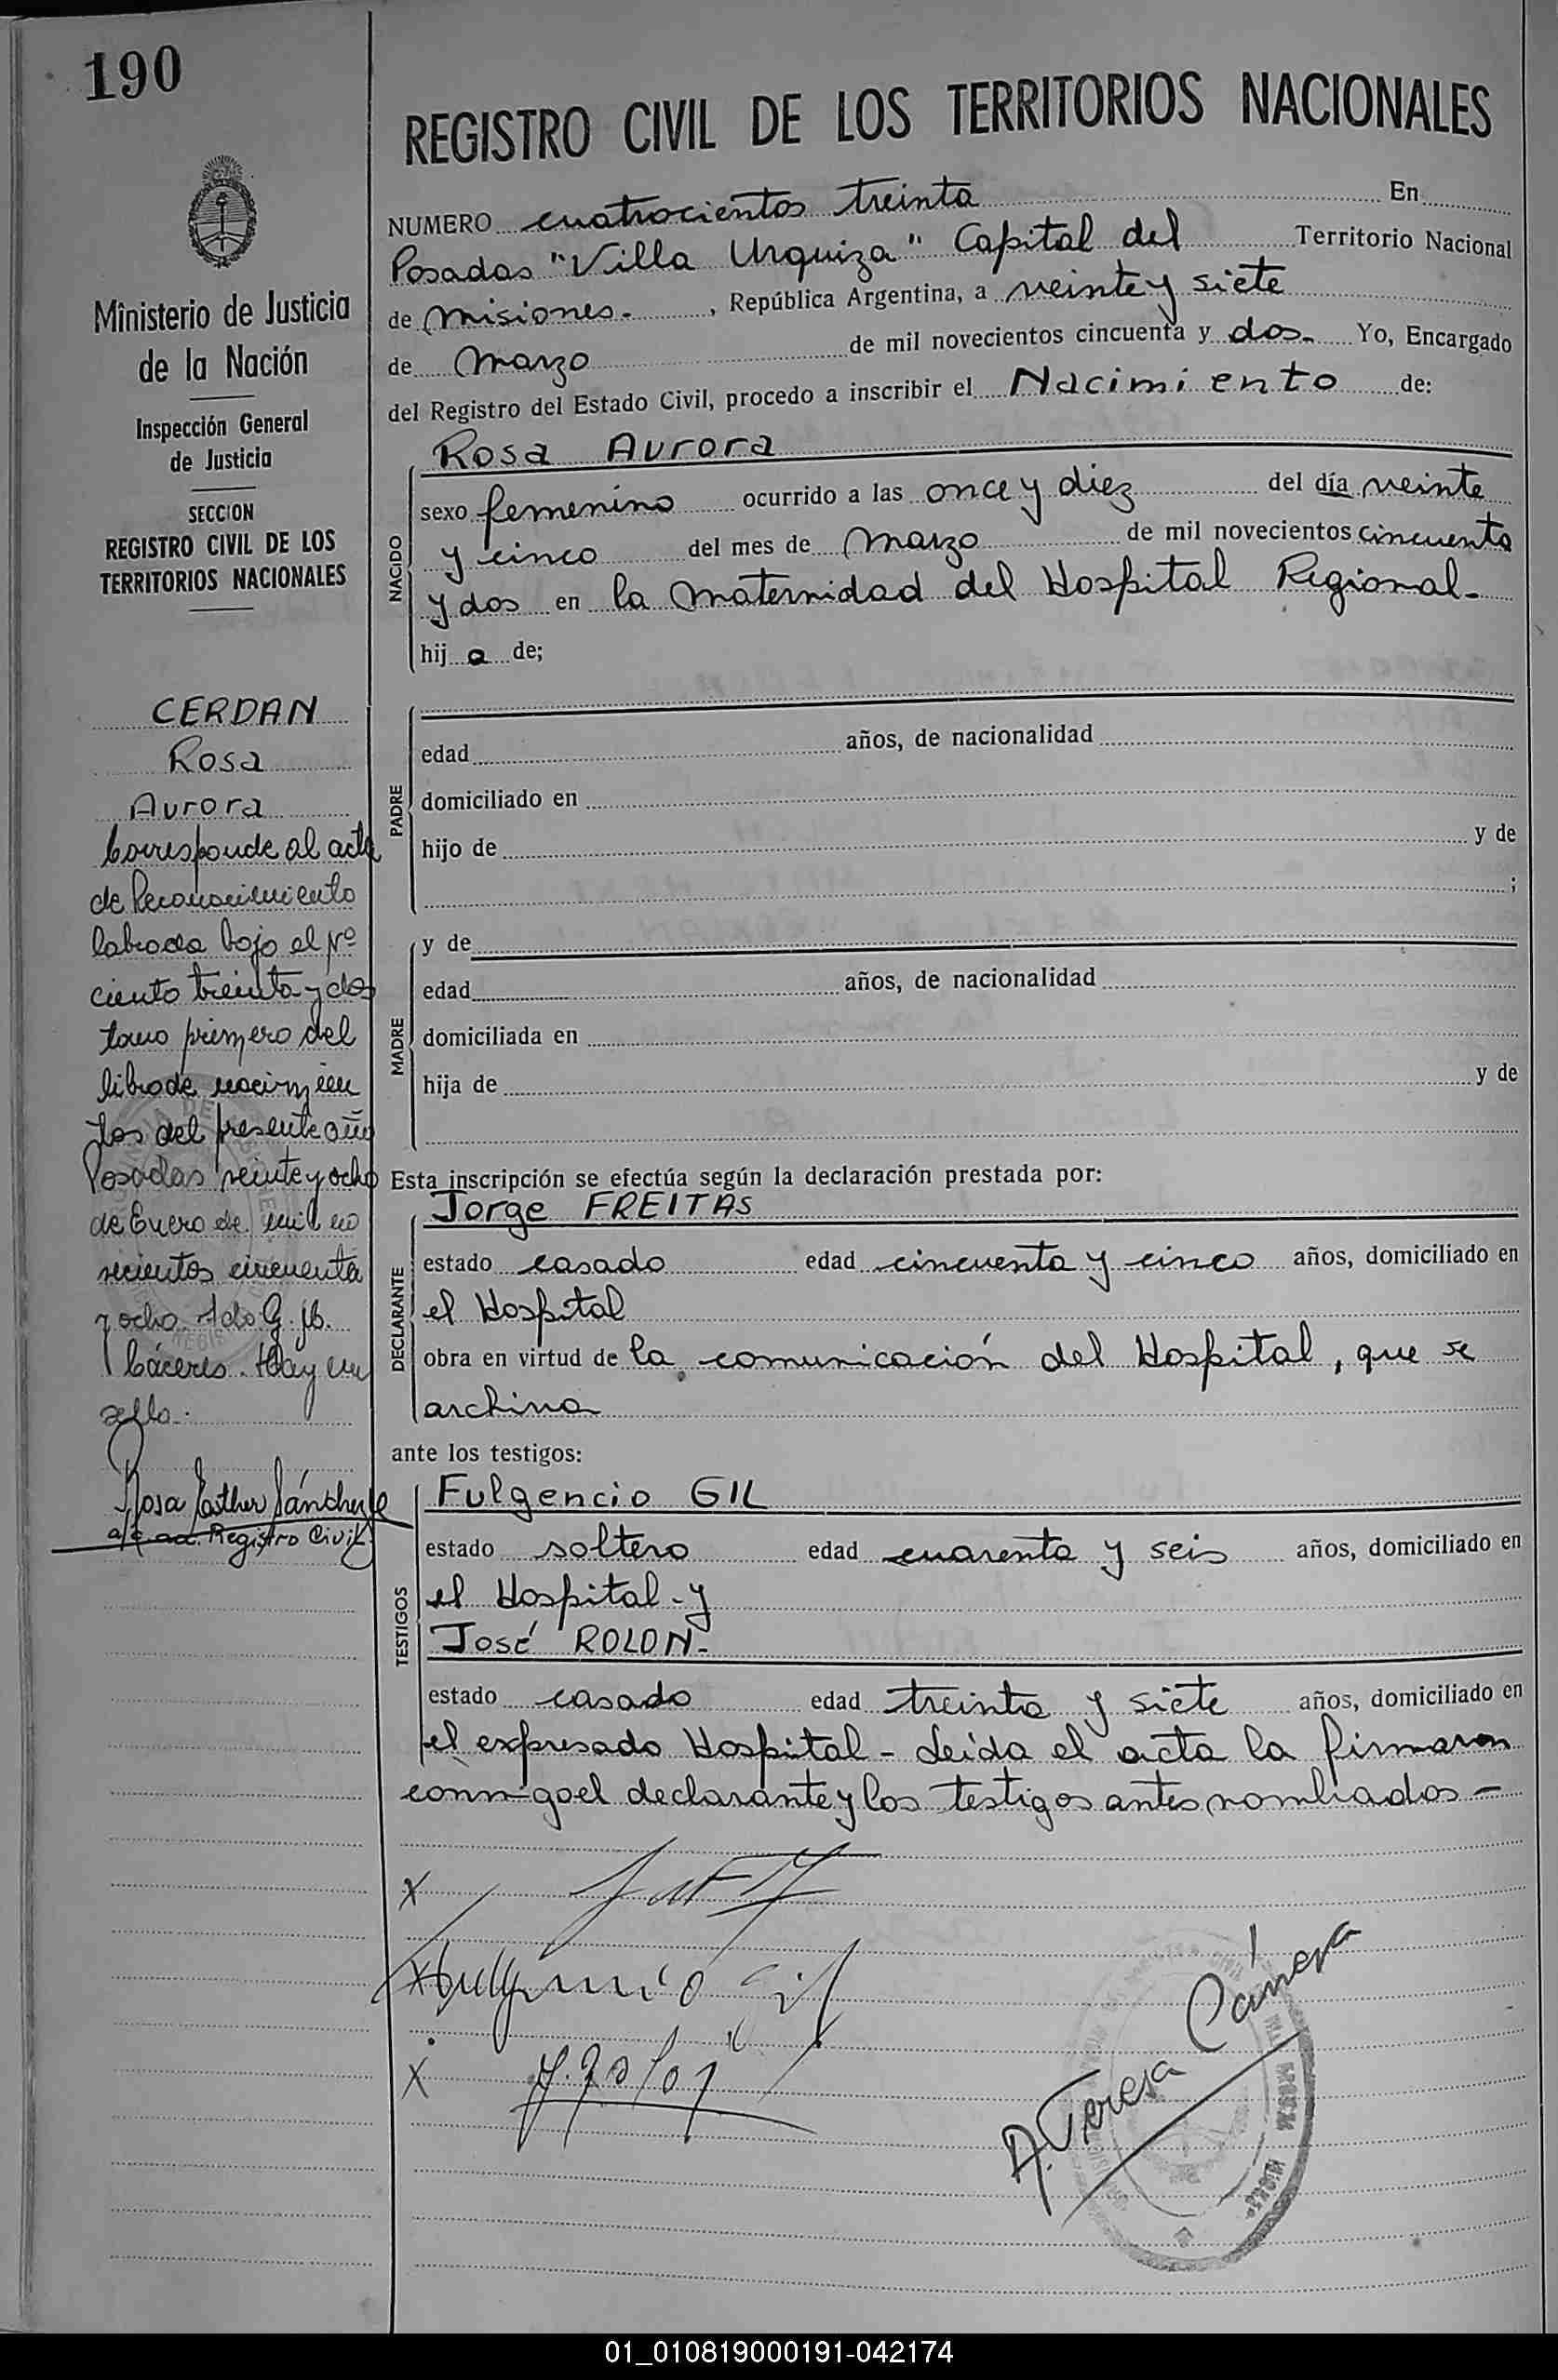 190
REGISTRO CIVIL DE LOS TERRITORIOS NACIONALES
Ministerio de Justicia
de la Nación
Inspección General
de Justicia
SECCION
REGISTRO CIVIL DE LOS
TERRITORIOS NACIONALES
CERDAN
Rosa
Aurora
Corresponde al acta
de Reconocimiento
labrada bajo el Nº
ciento treinta y dos
tomo primero del
libro de nacimien
tos del presente año
Posadas veinte y ocho
de Enero de mil no
vecientos cincuenta
y ocho. Fdo G. 
Cáceres. Hay un
sello.
Rosa Esther Sánchez
a/c Registro Civil
NUMERO cuatrocientos treinta En
Posadas "Villa Urquiza" Capital del Territorio Nacional
de Misiones. , República Argentina, a veinte y siete
de Marzo de mil novecientos cincuenta y dos. Yo, Encargado
del Registro del Estado Civil, procedo a inscribir el Nacimiento de:
Rosa Aurora
NACIDO
sexo femenino ocurrido a las once y diez del día veinte
y cinco del mes de Marzo de mil novecientos cincuenta
y dos en la Maternidad del Hospital Regional-
hij a de;
PADRE
edad años, de nacionalidad
domiciliado en
hijo de y de
;
MADRE
y de
edad años, de nacionalidad
domiciliada en
hija de y de
Esta inscripción se efectúa según la declaración prestada por:
DECLARANTE
Jorge FREITAS
estado casado edad cincuenta y cinco años, domiciliado en
el Hospital
obra en virtud de la comunicación del Hospital, que se
archiva
ante los testigos:
TESTIGOS
Fulgencio GIL
estado soltero edad cuarenta y seis años, domiciliado en
el Hospital - y
José ROLON-
estado casado edad treinta y siete años, domiciliado en
el expresado Hospital - Leida el acta la firmaron
conmigo el declarante y los testigos antes nombrados -
X
X Fulgencio Gil
X J. Rolon
A. Teresa Cánepa
01_010819000191-042174